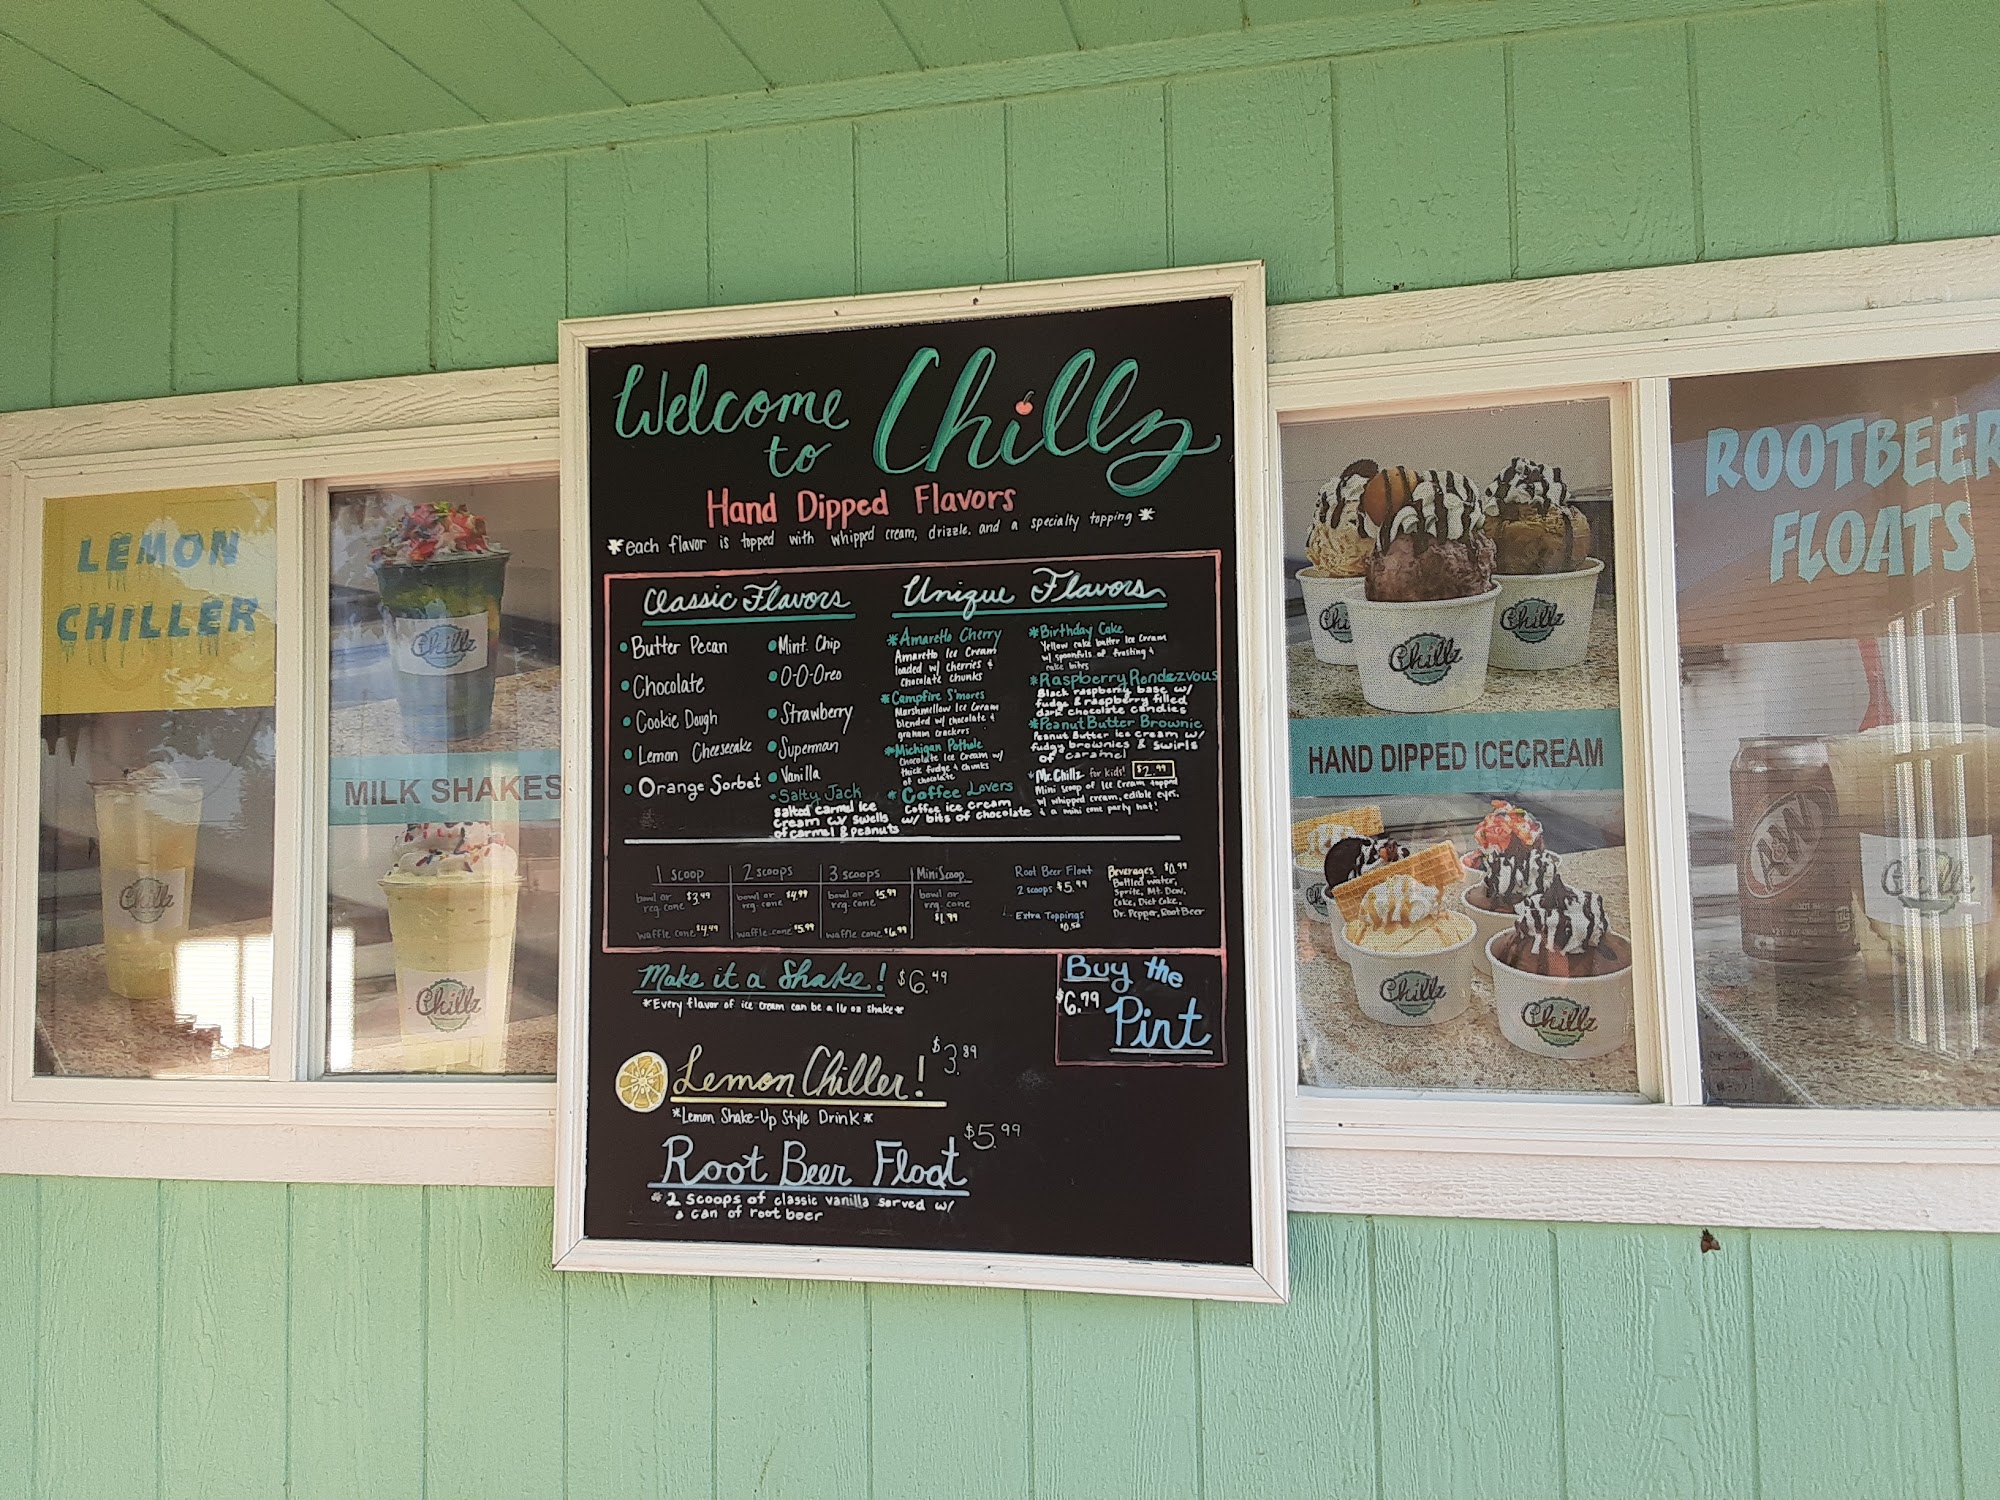 Welcome
to Chillz
Hand Dipped Flavors
*each flavor is topped with whipped cream, drizzle, and a specialty topping*
Classic Flavors
Butter Pecan
Chocolate
Cookie Dough
Lemon Cheesecake
Orange Sorbet
Mint Chip
O-O-Oreo
Strawberry
Superman
Vanilla
Salty Jack
Salted carmel ice
cream w/ swells
of carmel & peanuts
Unique Flavors
*Amaretto Cherry
Amaretto Ice Cream
loaded w/ cherries &
chocolate chunks
*Campfire S'mores
Marshmellow Ice Cream
blended w/ chocolate &
graham crackers
*Michigan Pothole
Chocolate Ice Cream w/
thick fudge & chunks
of chocolate
*Coffee Lovers
Coffee ice cream
w/ bits of chocolate
*Birthday Cake
Yellow cake batter Ice Cream
w/ spoonfuls of frosting &
cake bites
*Raspberry Rondezvous
Black raspberry base w/
fudge & raspberry filled
dark chocolate candies
*Peanut Butter Brownie
Peanut Butter ice cream w/
fudgy brownies & swirls
of caramel
*Mr. Chillz for kids! $2.99
Mini scoop of Ice Cream topped
w/ whipped cream, edible eyes,
& a mini cone party hat!
1 scoop
bowl or
reg. cone $3.49
waffle cone $4.49
2 scoops
bowl or
reg. cone $4.99
waffle cone $5.99
3 scoops
bowl or
reg. cone $5.99
waffle cone $6.99
Mini Scoop
bowl or
reg. cone
$1.99
Root Beer Float
2 scoops $5.99
Extra Toppings
$0.50
Beverages $0.99
Bottled water,
Sprite, Mt. Dew,
Coke, Diet Coke,
Dr. Pepper, Root Beer
Make it a Shake! $6.49
*Every flavor of ice cream can be a 16 oz shake*
Buy the
$6.79
Pint
Lemon Chiller! $3.89
*Lemon Shake-Up Style Drink*
Root Beer Float $5.99
*2 scoops of classic vanilla served w/
a can of root beer
LEMON
CHILLER
Chillz
Chillz
MILK SHAKES
Chillz
Chi
Chillz
Chillz
HAND DIPPED ICECREAM
Chillz
Chillz
ROOTBEER
FLOATS
A&W
Chillz